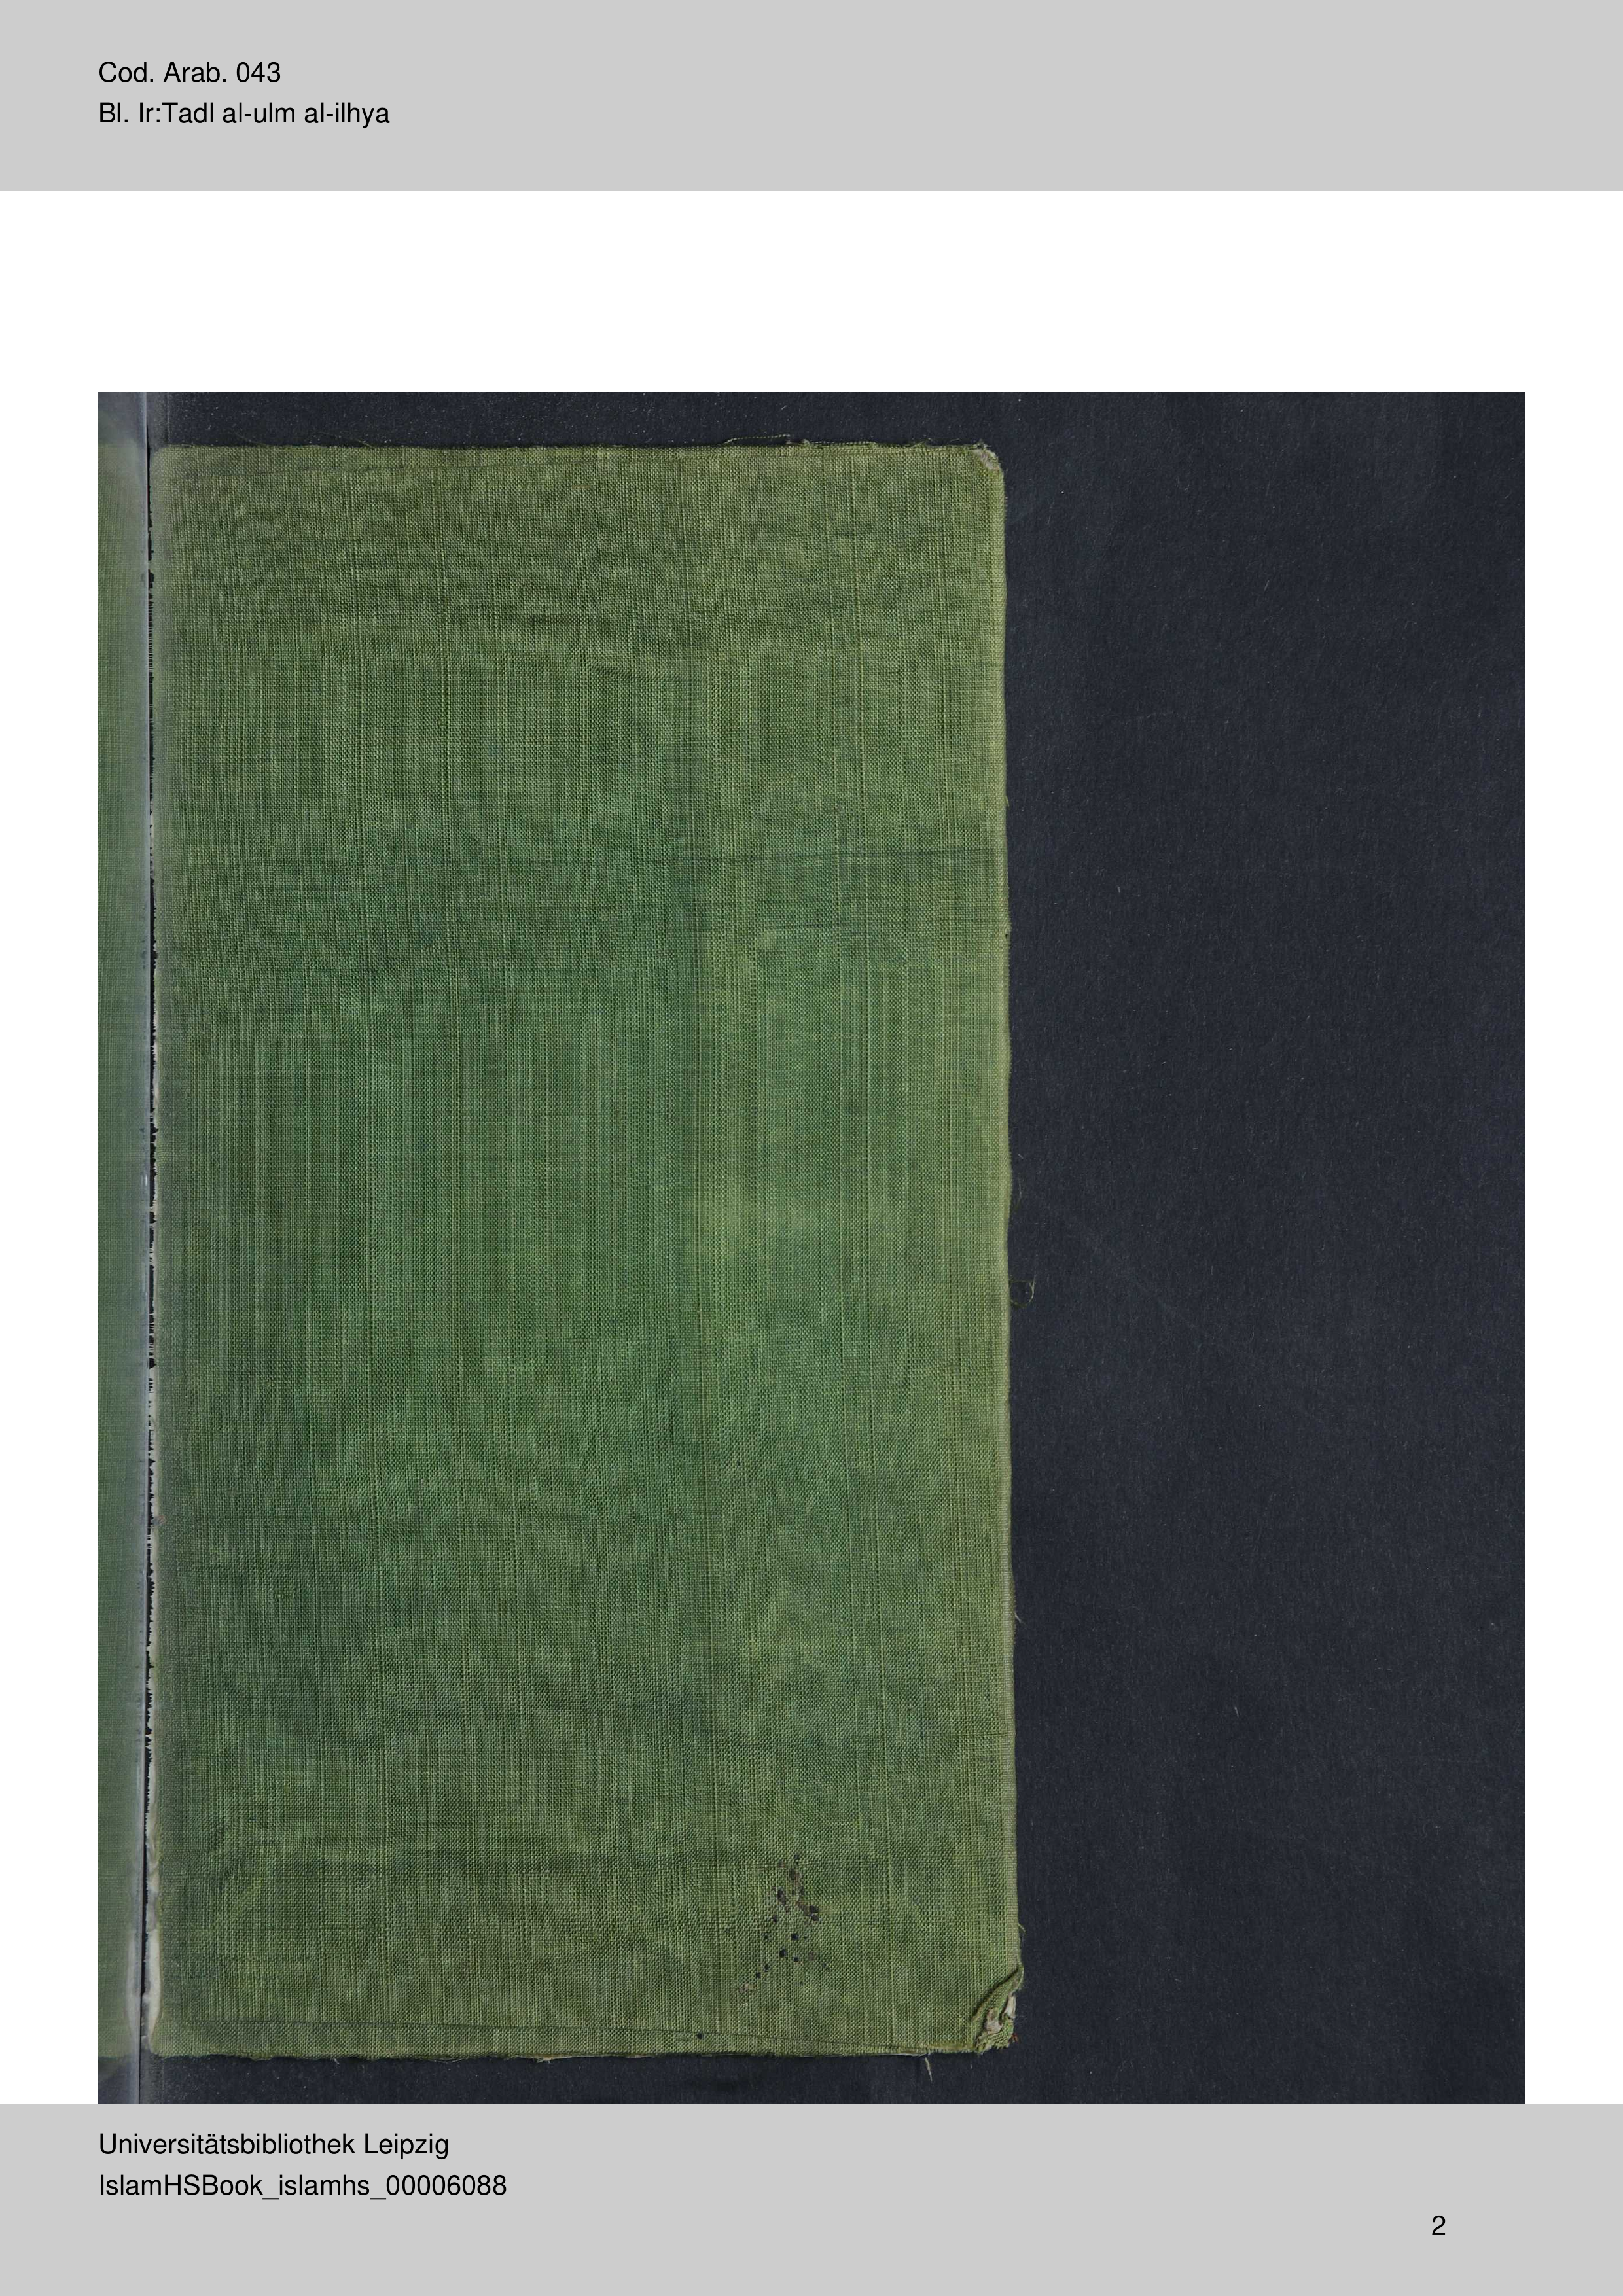 Cod. Arab. 043
Bl. Ir:Tadl al-ulm al-ilhya
Universitätsbibliothek Leipzig
IslamHSBook_islamhs_00006088
2